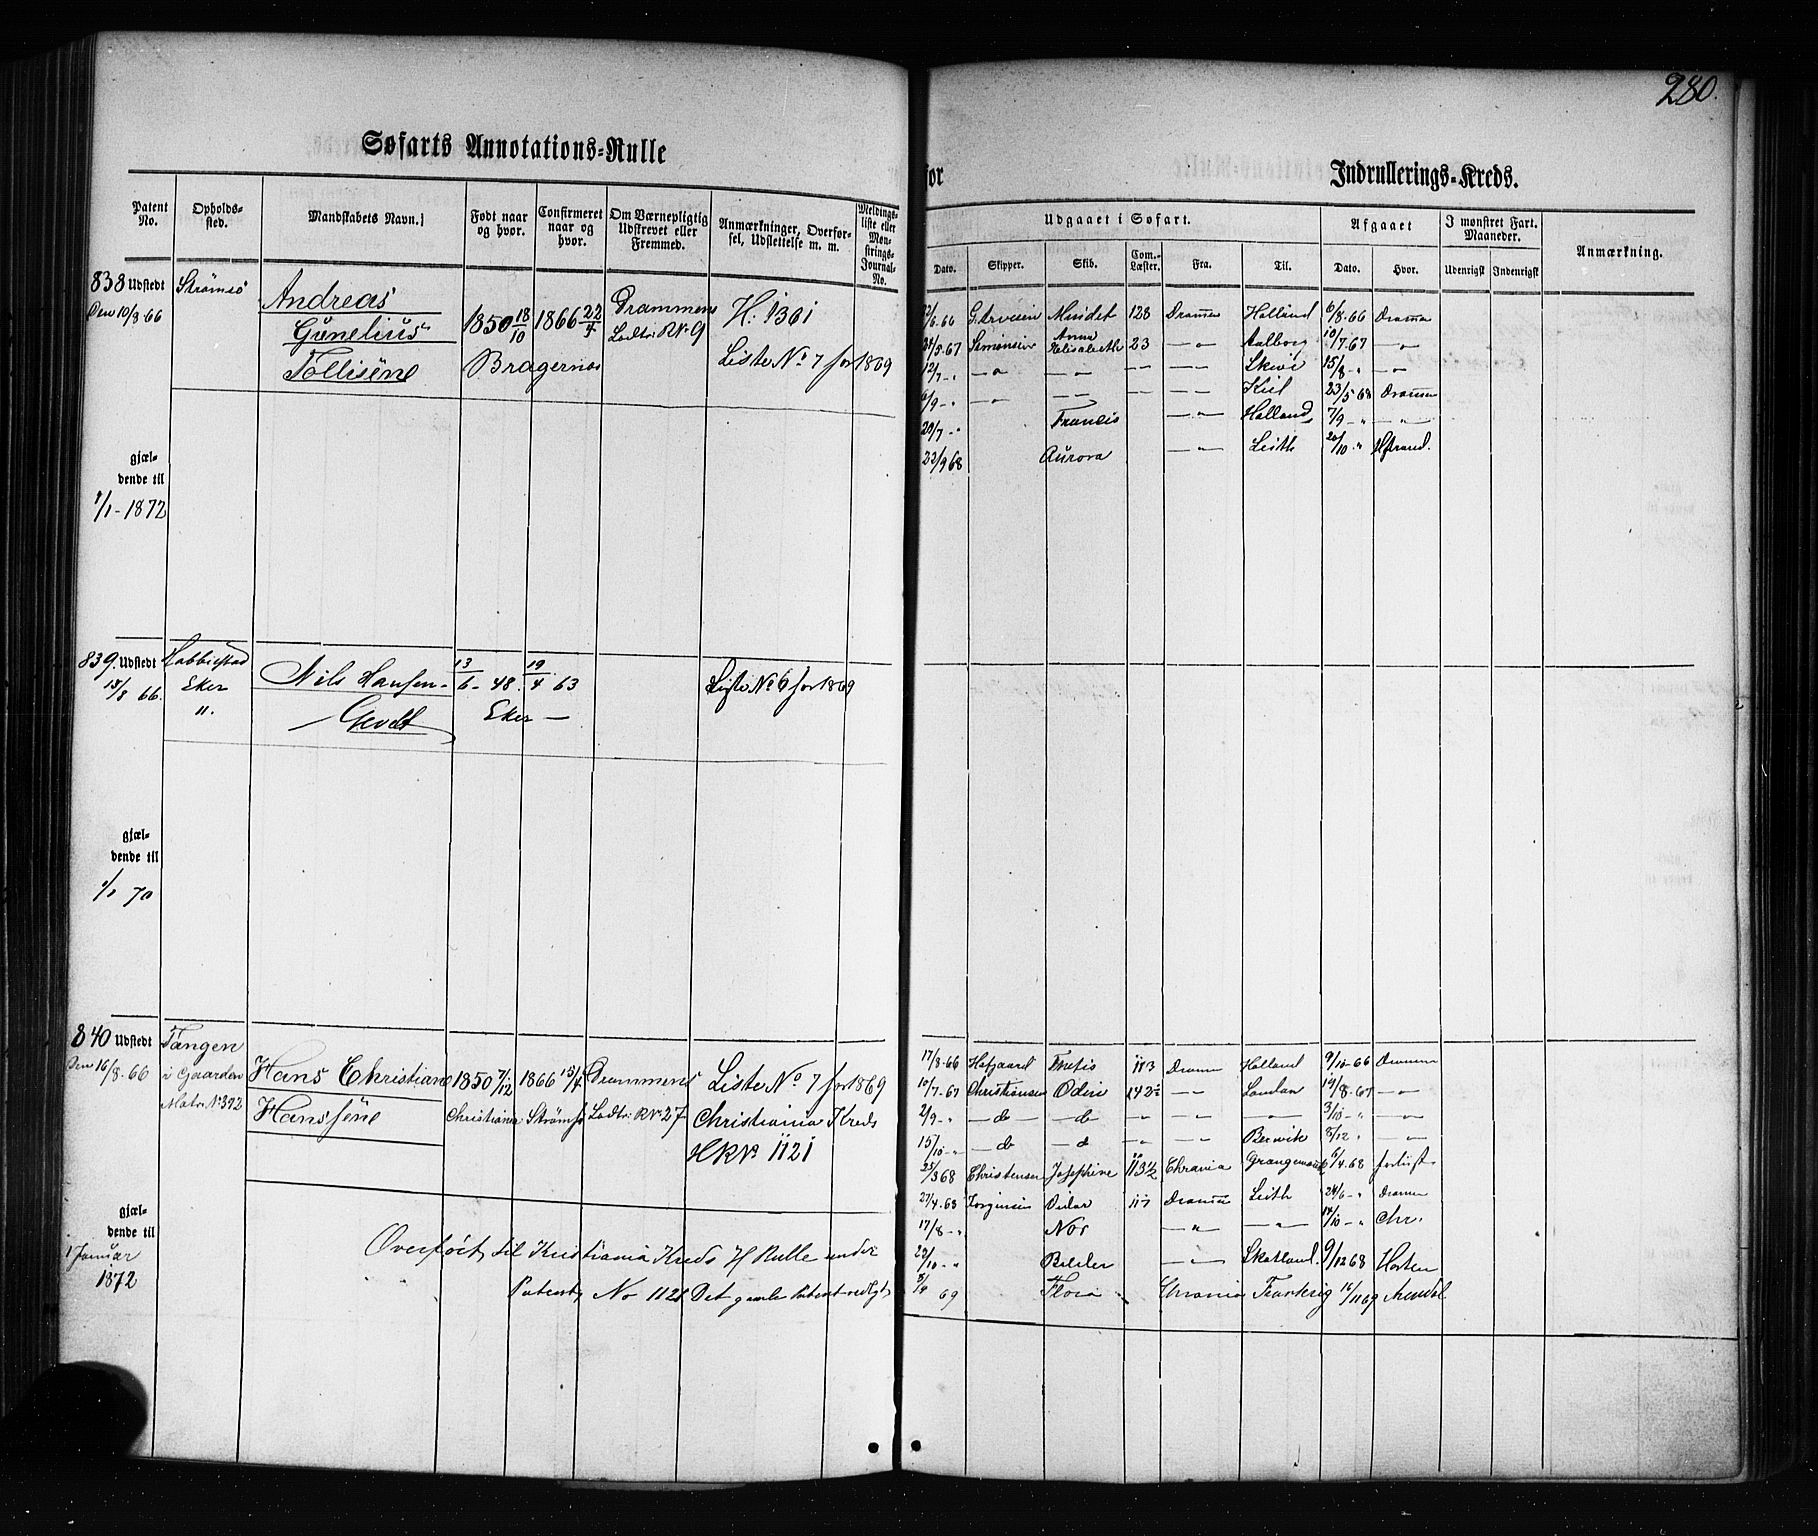 280.
Søfarts Annotations-Rulle
for Indrullerings-Kreds.
Patent No. Opholdssted. Mandskabets Navn. Født naar og hvor. Confirmeret naar og hvor. Om Værnepligtig Udskrevet eller Fremmed. Anmærkninger, Overførsel, Udslettelse m. m. Meldingsliste eller Mønstrings-Journal-No.
Udgaaet i Søfart. Afgaaet I mønstret Fart. Maaneder. Anmærkning.
Dato. Skipper. Skib. Com.-Læster. Fra. Til. Dato. Hvor. Udenrigst Indenrigst
838 Udstedt Strømsö Andreas
Den 10/8 66 Gunelius 1850 18/10 1866 22/4 Drammens Lodtr: R No 9 H. 1301
Tollisene Bragernes Liste No 7 for 1869
gjældende til
1/1 - 1872
/6.66 G. Arvesen Mindet 128 Dramen Holland 6/8.66 Dramen
31/5.67 Simonsen Anna Elisabeth 23 —"— Aalborg 10/7.67 —"—
12/7 - " —"— —"— — — Skive 15/8 - " —"—
6/9 - " —"— — — — — Kiel 23/5 68 Dramen
20/7 - " Francis —"— Holland 7/9 - " —"—
22/9 68 Aurora —"— Leith 20/10 " Hstrand.
839. Udstedt Habbestad Nils Hansen 13/6 - 48. 19/4 63 Liste No 6 for 1869
15/8 66. Eker Gevelt Eker —
".
gjældende til
1/1 70
840 Udstedt Tangen
Den 16/8.66 i Gaarden Hans Christian 1850 7/12 1866 15/4 Drammens Liste No 7 for 1869
Matr. No 392 Hanssene Christiania Strømsö Lodtr: R No 27 Christiania Kreds
HR No 1121
gjældende til
1 Januar
1872
Overført til Kristiania Kreds H Rulle under
Patent No 1121 Det gamle Patent vedlgt
17/8.66 Hafgaard Thetis 113 Dramn Holland 9/10.66 Dramen
10/7.67 Christiansen Odin 142½ —"— London 14/8.67 —"—
2/9 - " —do —do " " —"— 3/10 - " —"—
15/10 - " —do —do " " Berwik 8/12 " —"—
25/3 68 Christensen Josephine 113½ Chrania Grangemouth 6/4.68 forlist
27/4.68 Jørgensen Peder 117 Dramen Leith 24/6 - " Dramen
17/8 - " Nor —"— —"— 14/10 - " Chr.
29/10 - " Balder —"— Skotland. 9/12 68 Horten
8/9 69 Flora Chrania Frankrig 16/11 69 Arendal